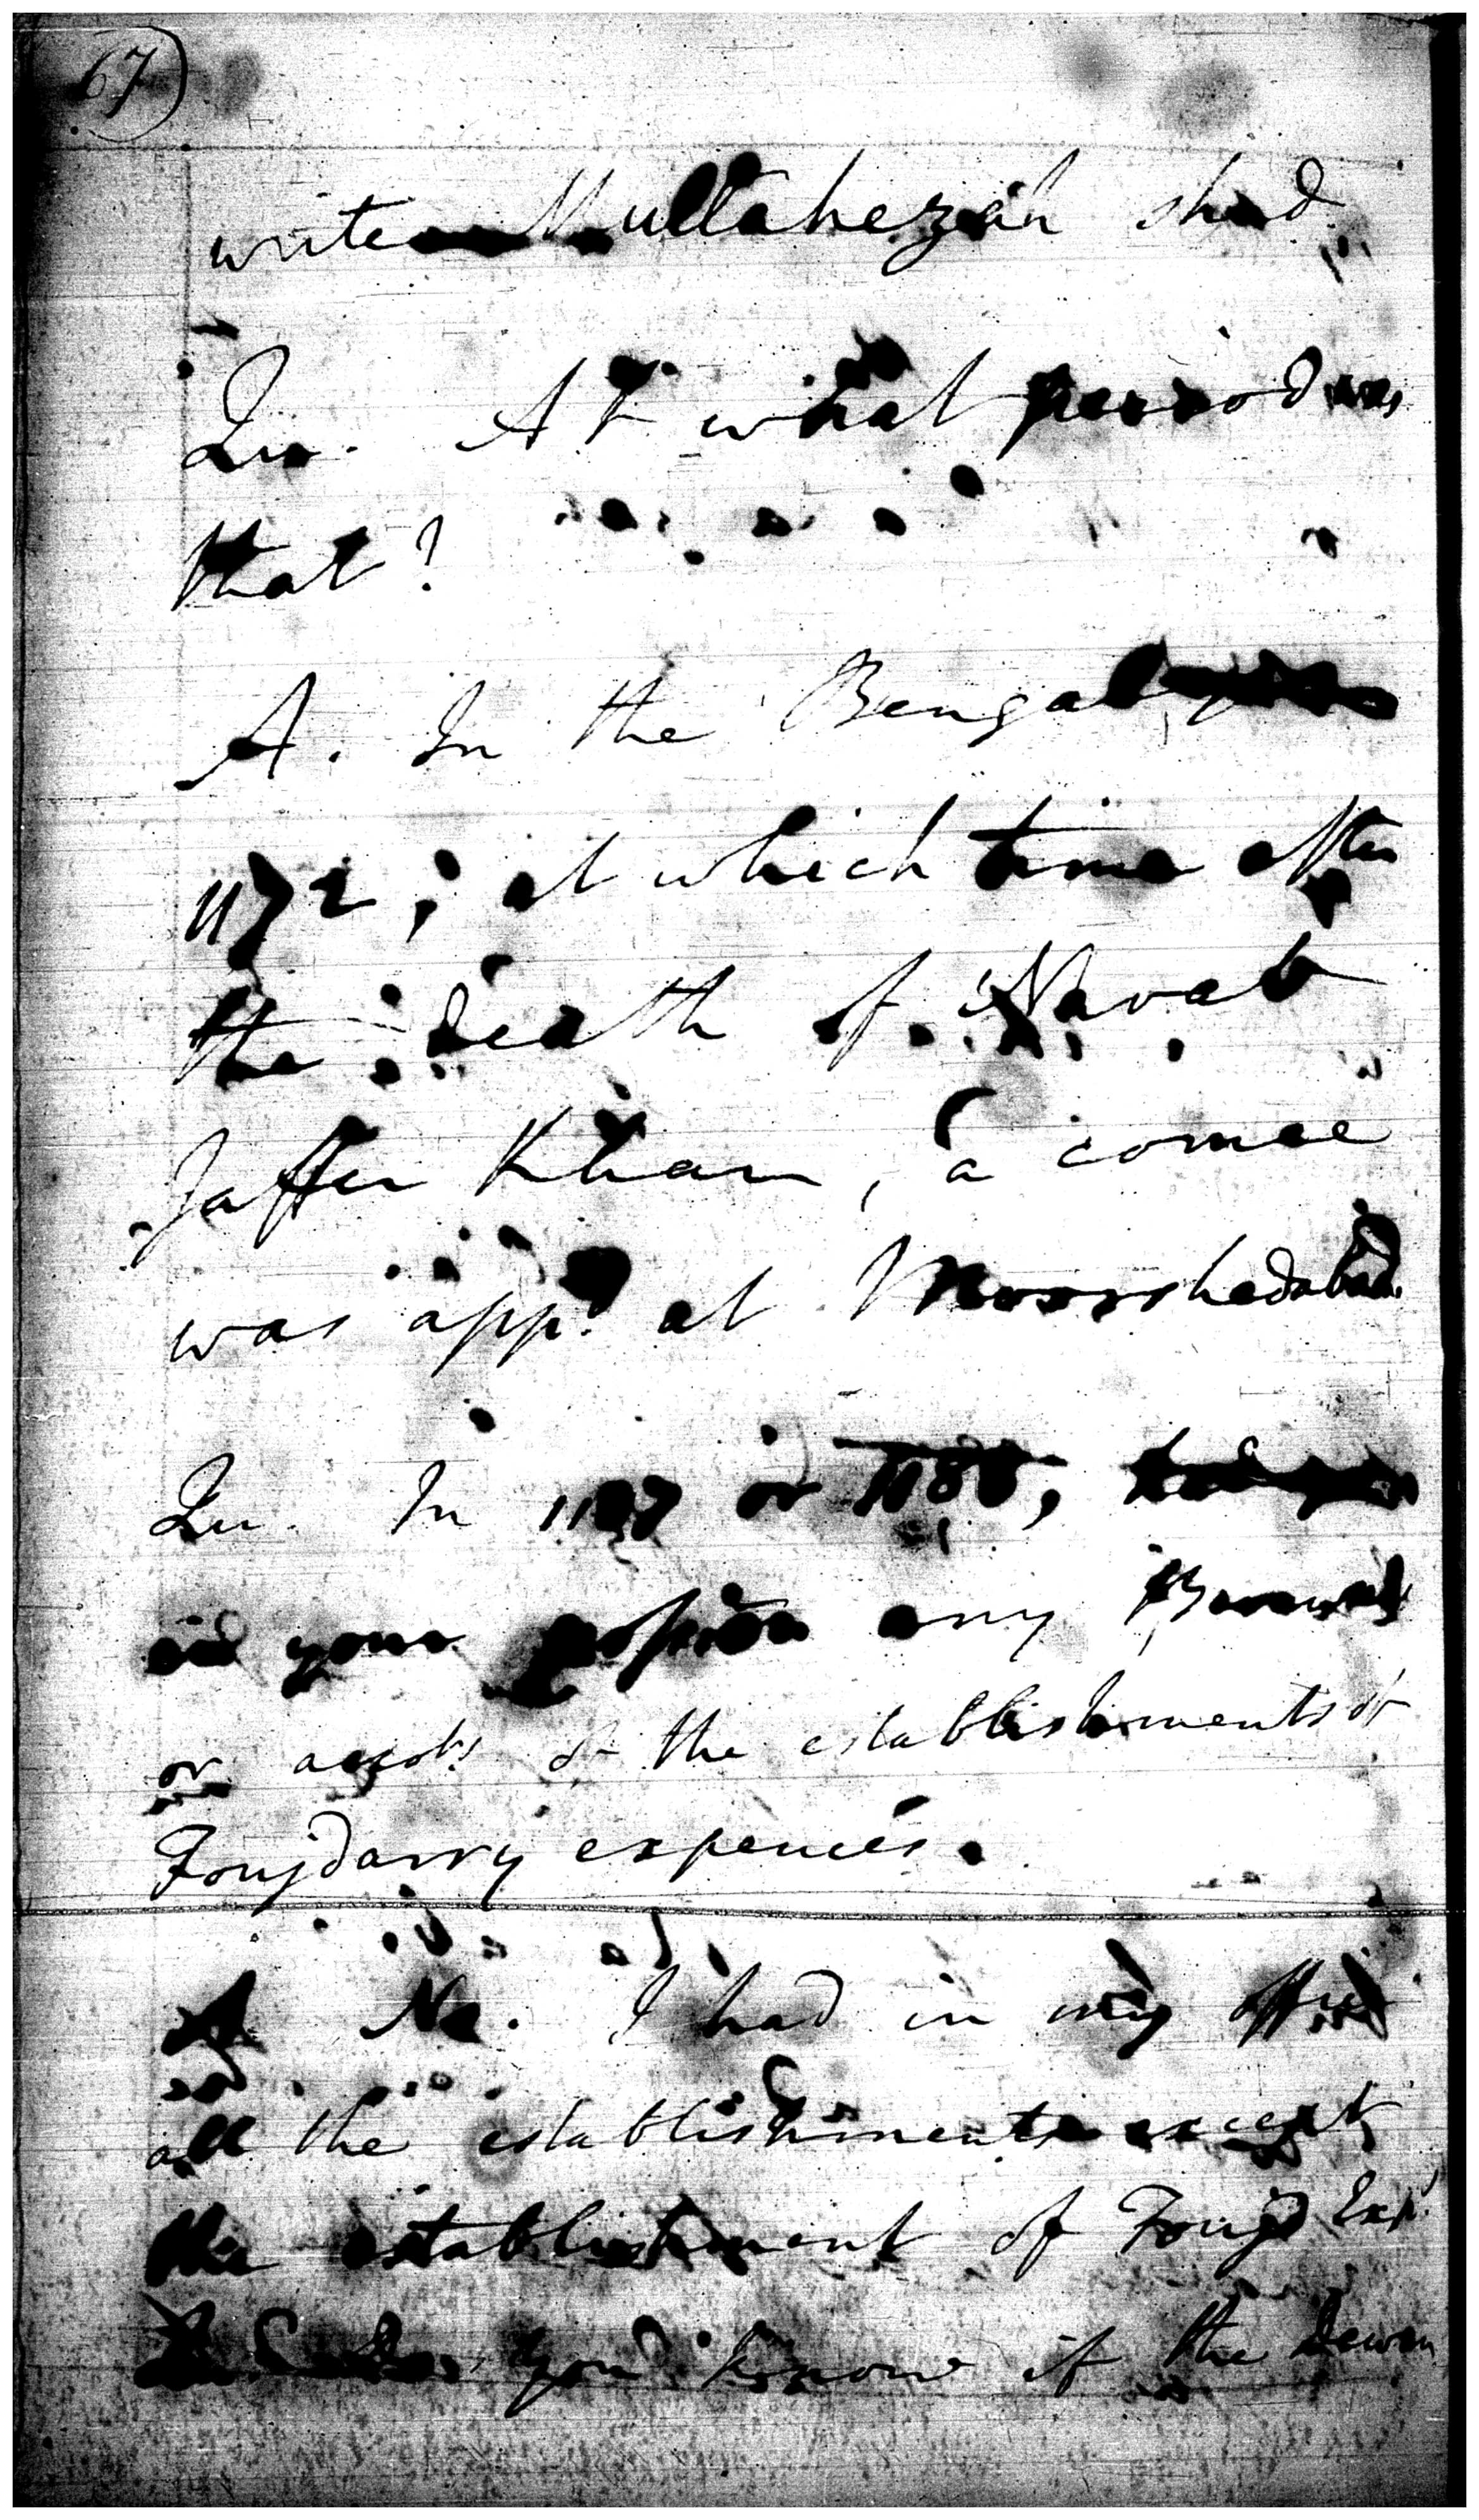 67
write Mullahezah shud
Qu. At what period was
that?
A. In the Bengal
1172, at which time after
the death of Navab
Jaffer Khan, a comee
was appd at Moorshedabad.
Qu. In 1187 or 1188, had you
in your possion any
or accots of the establishments of
Foujdarry expences.
A No. I had in my office
all the establishments except
the establishment of Foujd Exps
you know if the Dewan